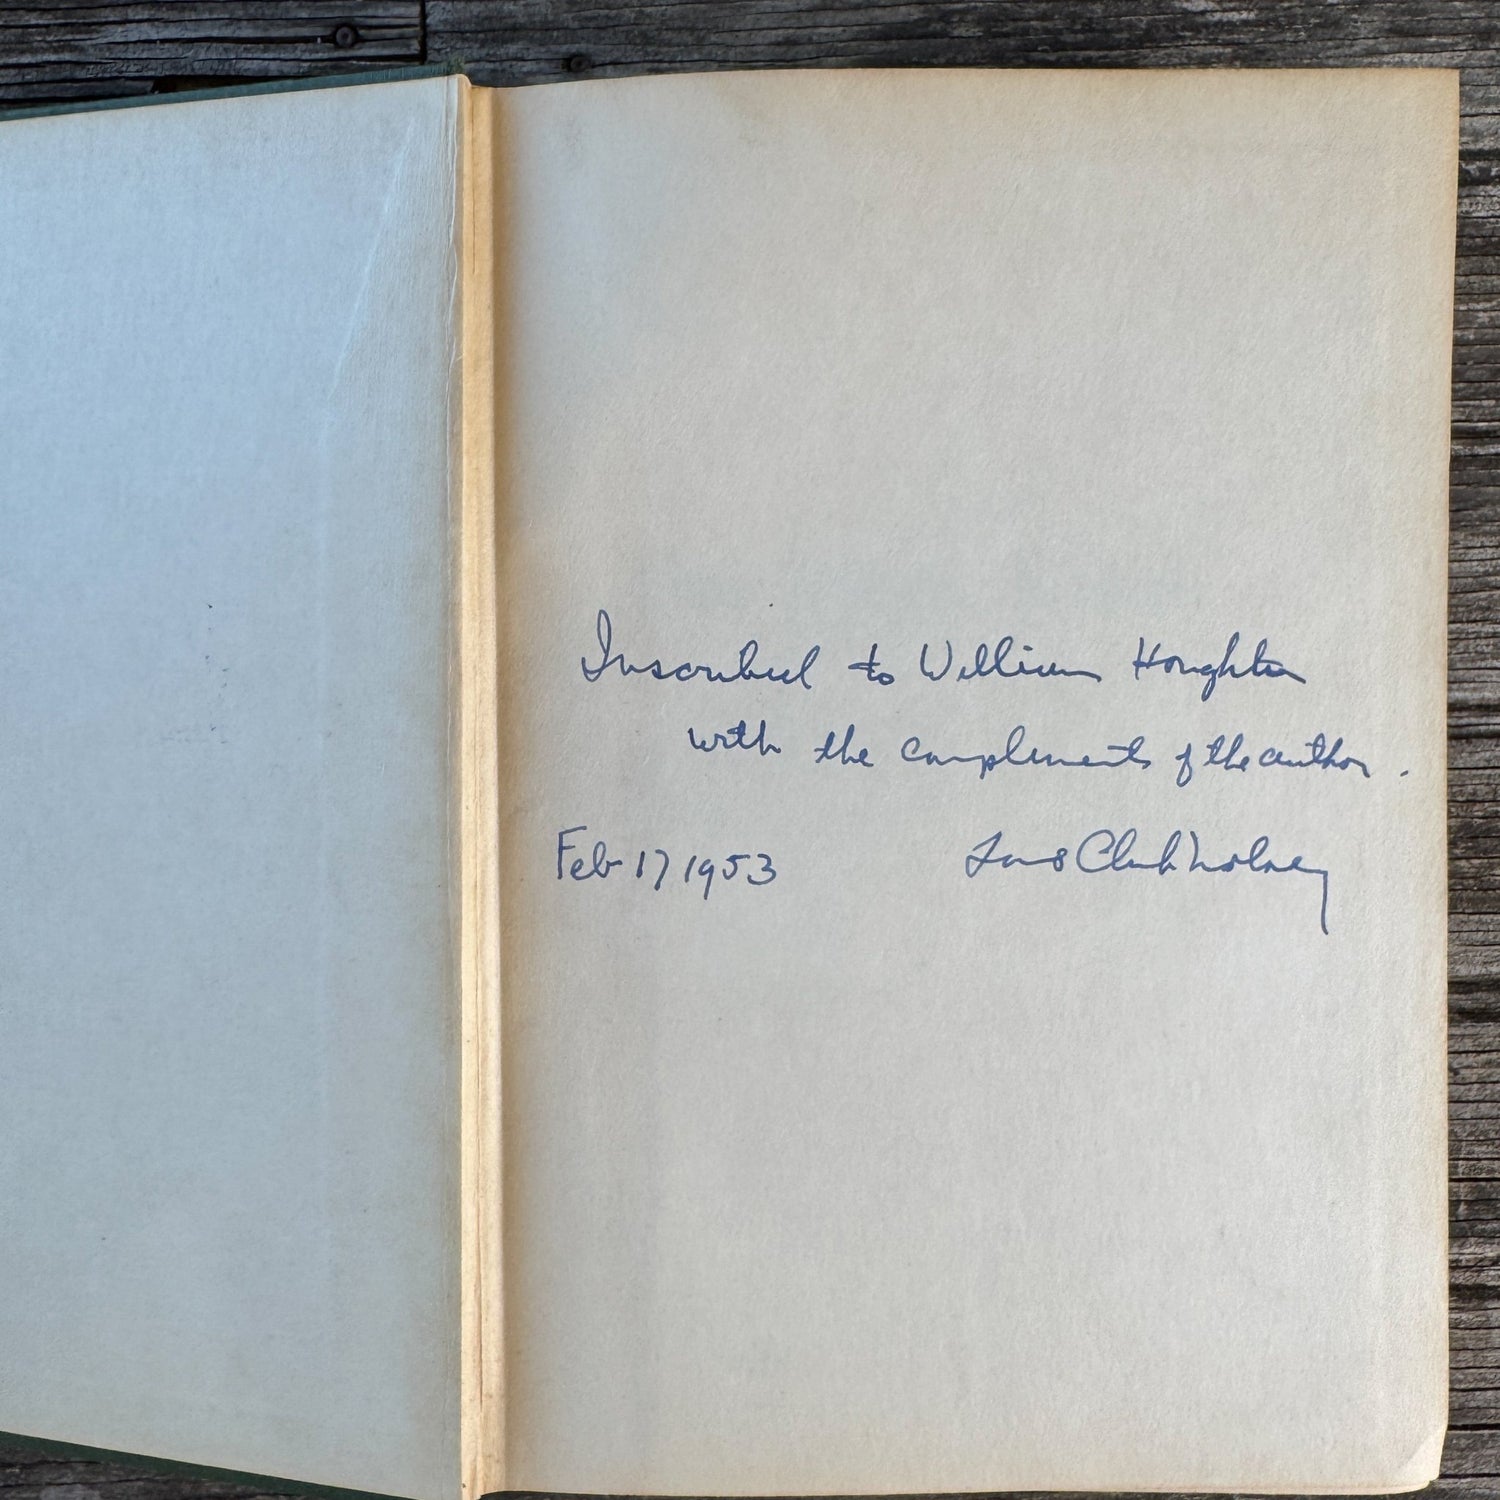 Inscribed to William Houghton
with the compliments of the author.
Feb 17 1953